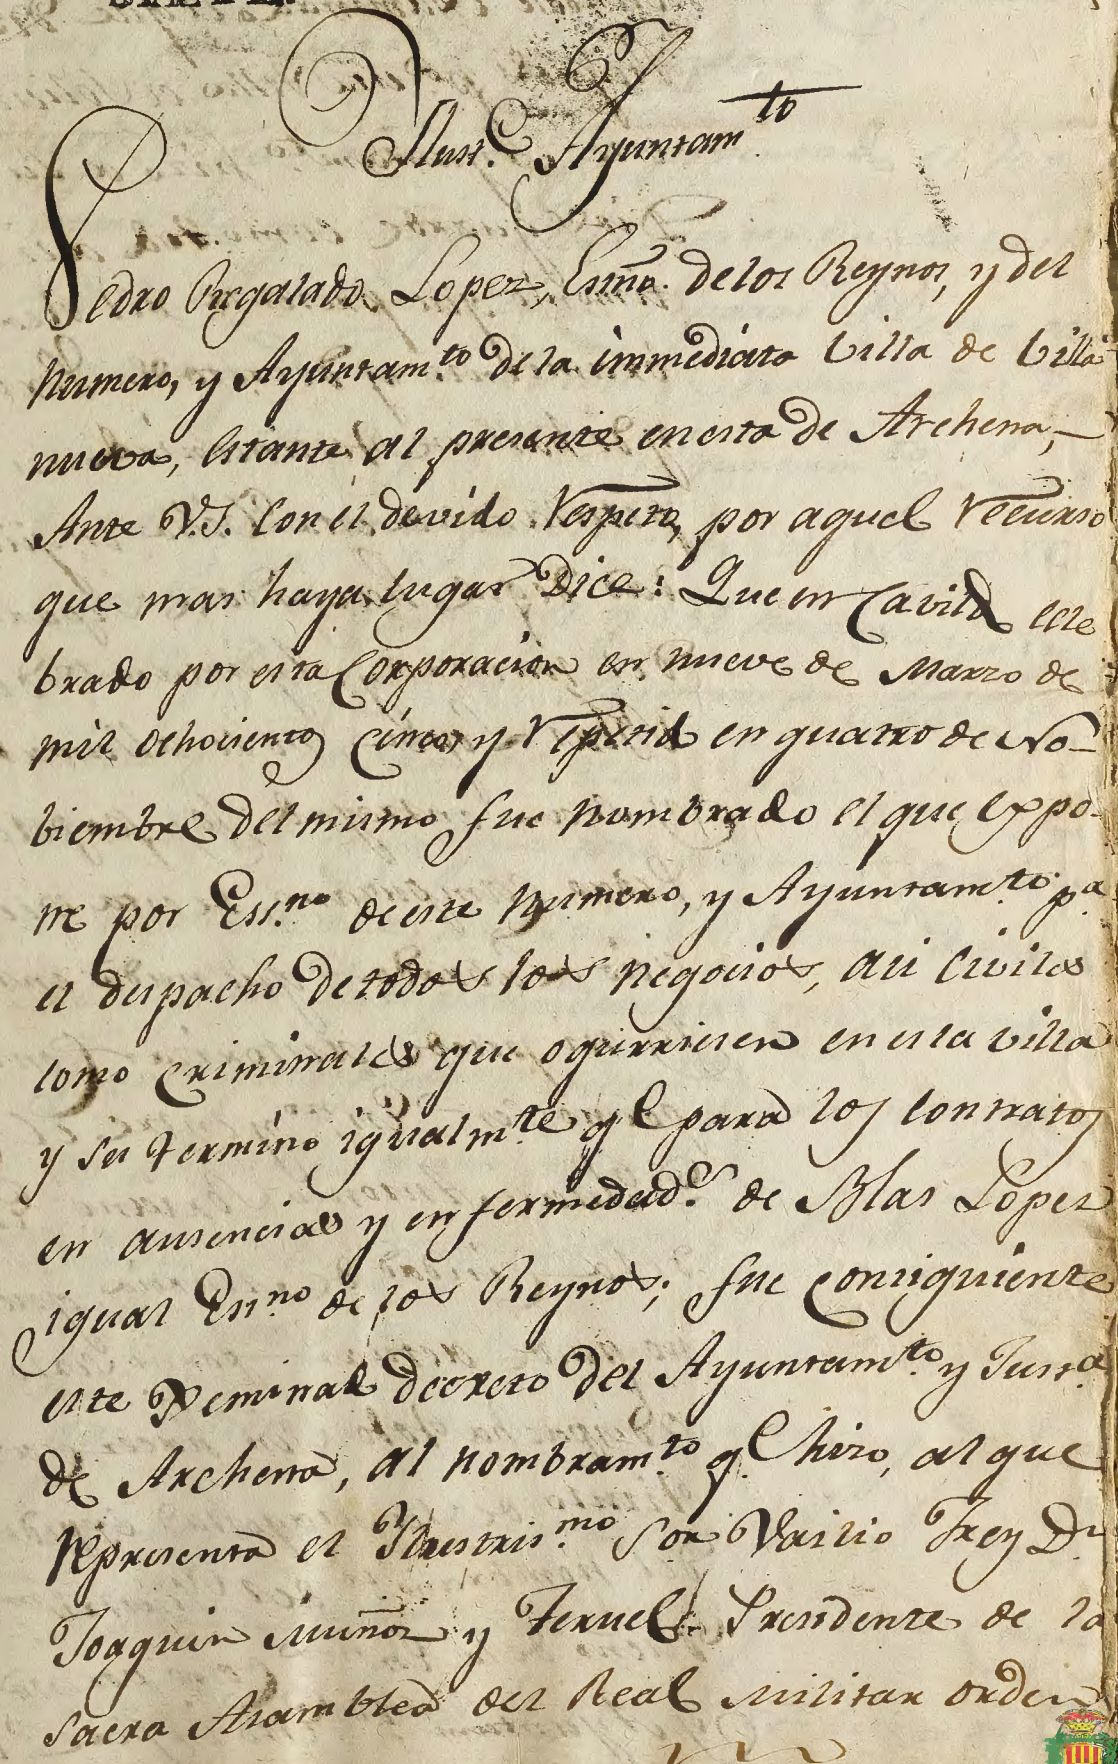 Ilust.e Ayuntam.to
Pedro Regalado Lopez, Esnno. de los Reynos, y del
Numero, y Ayuntam.to de la immediata Villa de Villa
nueva, estante al presente en esta de Archena,
Ante V.S. con el devido respeto, por aquel recurso
que mas haya lugar Dice: Que en Cavildo cele
brado por esta Corporacion en nueve de Marzo de
mil ochocientos cinco, y repetido en quatro de No-
biembre del mismo fue nombrado el que expo-
ne por Ess.no de este Numero, y Ayuntam.to p.a
el despacho de todos los negocios, asi civiles
como criminales que ogurriesen en esta villa
y su termino igualm.te q.e para los contratos
en ausencias y enfermedad.s de Blas Lopez
igual Esn.no de los Reynos; fue consiguiente
este Deminal decreto del Ayuntam.to y Just.a
de Archena, al nombram.to q.e hizo, al que
representa el Ilustris.mo Sor Vailio Frey D.n
Joaquin Muñoz y Teruel Presidente de la
Sacra Asamblea del Real Militar orden